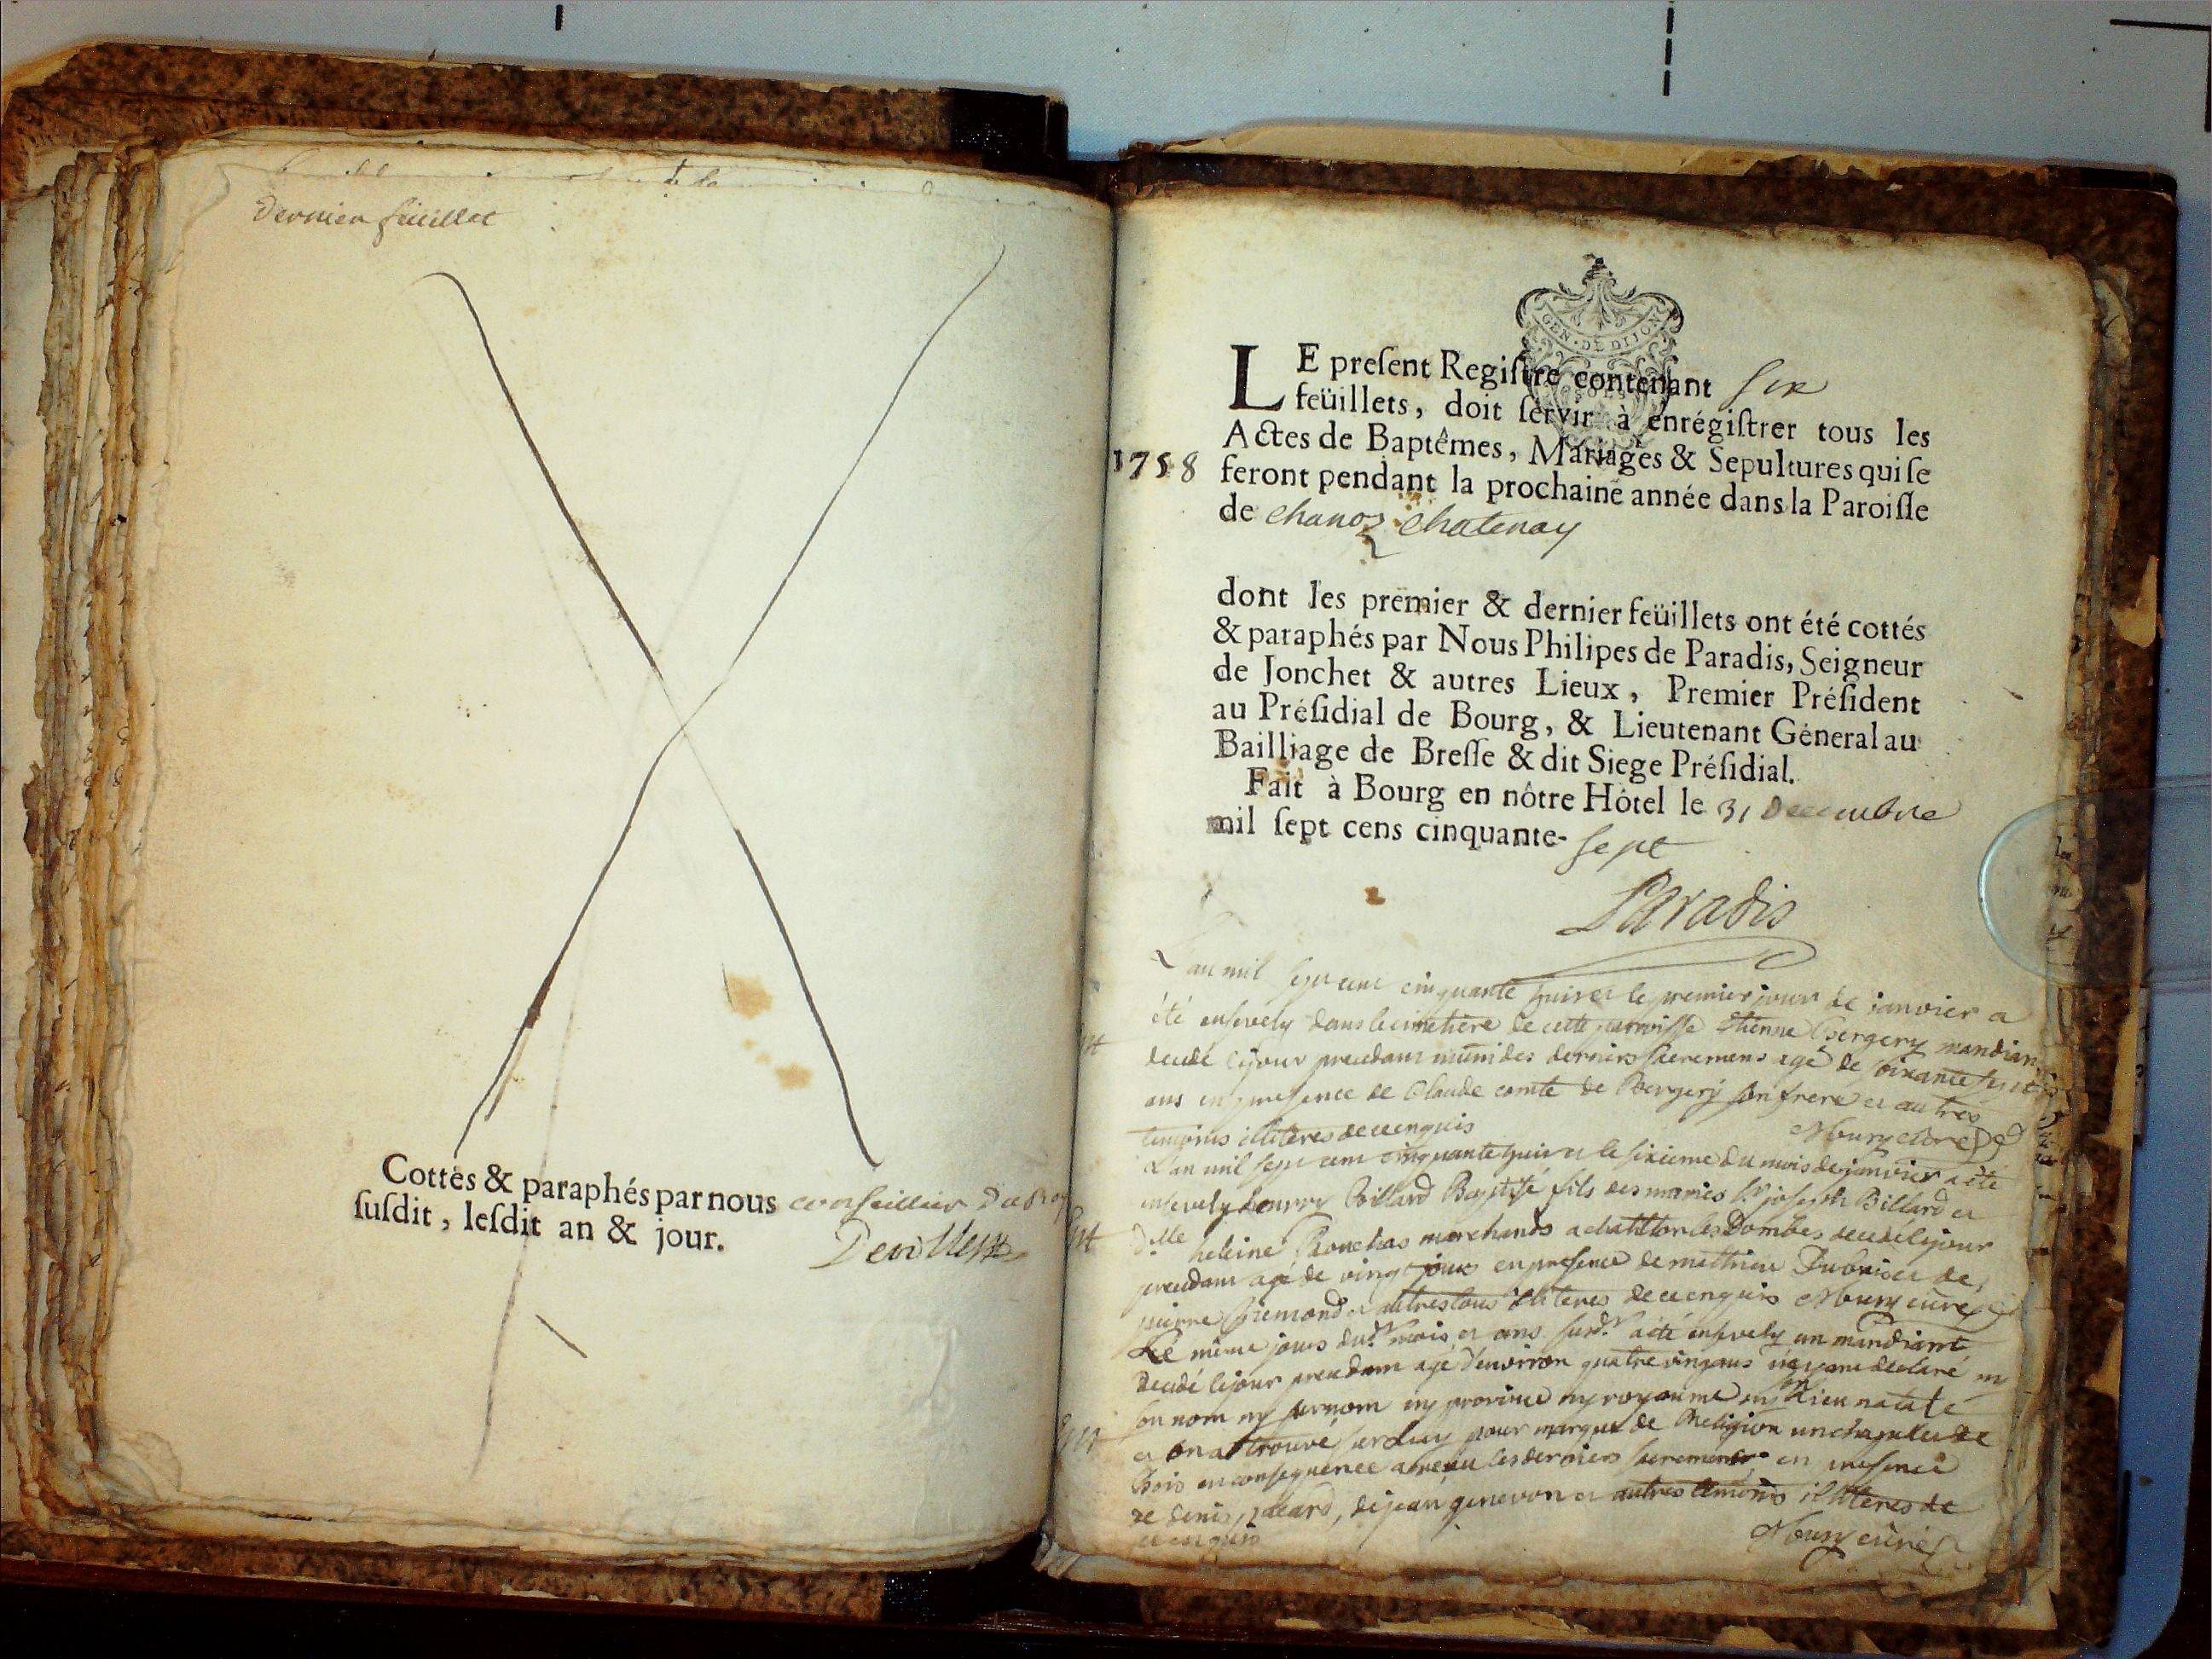 Dernier feüillet
Cottés & paraphés par nous conseiller du Roy
susdit, lesdit an & jour.
GEN · DE DIJON
LE present Registre contenant six
feüillets, doit servir à enrégistrer tous les
Actes de Baptêmes, Mariages & Sepultures qui se
1758 feront pendant la prochaine année dans la Paroisse
de chanoz chatenay
dont les premier & dernier feüillets ont été cottés
& paraphés par Nous Philipes de Paradis, Seigneur
de Jonchet & autres Lieux, Premier Président
au Présidial de Bourg, & Lieutenant Géneral au
Bailliage de Bresse & dit Siege Présidial.
Fait à Bourg en nôtre Hôtel le 31 Decembre
mil sept cens cinquante- sept
Paradis
L'an mil sept cent cinquante huit et le premier jour de janvier a
été ensevely dans le cimetière de cette paroisse étienne Bergery mandiant
decedé le jour precedant muni des derniers sacremens agé de soixante
ans en presence de Claude comte de Bergery son frere et autres
temoins illiteres de ce enquis Moury curé
L'an mil sept cent cinquante huit et le sixieme du mois de janvier a été
ensevely Billard Baptisé fils des mariés Sr joseph Billard et
Dlle heleine marchands a chatillon les Dombes decedé le jour
precedant agé de vingt jours en presence de matthieu de
pierre et autres tous illiteres de ce enquis Moury curé
Le même jour dud. mois et ans susd. a été ensevely un mandiant
decedé le jour precedant agé d'environ quatre vingt ans n'ayant declaré ny
son nom ny surnom ny province ny royaume
et on a trouvé sur luy pour marque de Religion un chapelet de
Bois en consequence a reçu les derniers sacremens en presence
de denis, de jean genevon et autres temoins illiteres de
ce enquis Moury curé